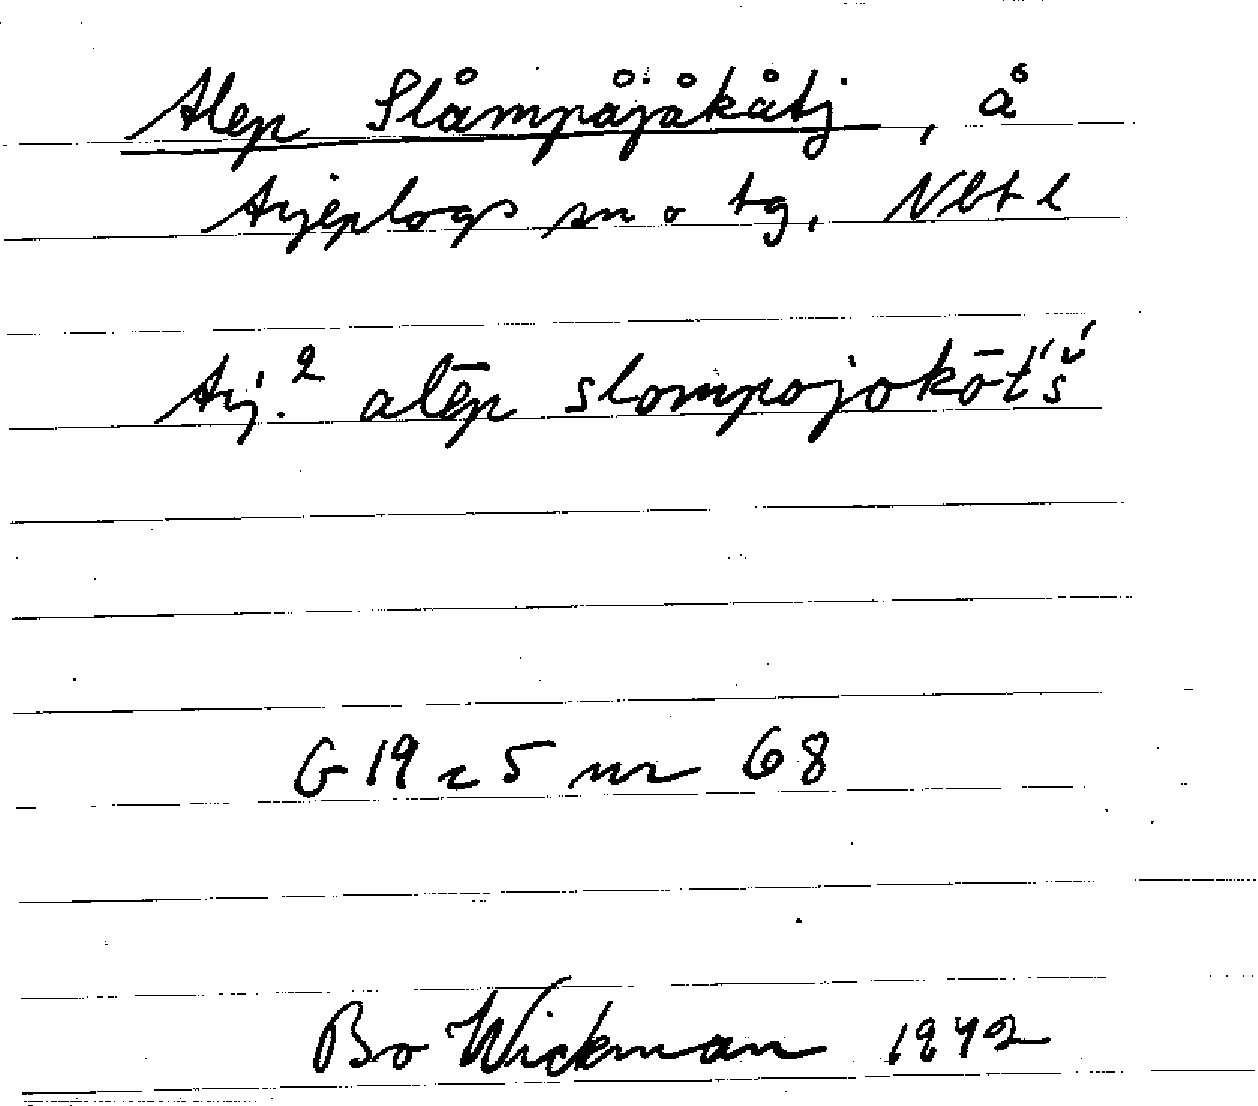 Alep Slåmpåjåkåtj, å
Arjeplogs sn o tg, Nbt l
Arj.2 alēp slompojokōt́š́
G 19 c 5 nr 68
Bo Wickman 1942